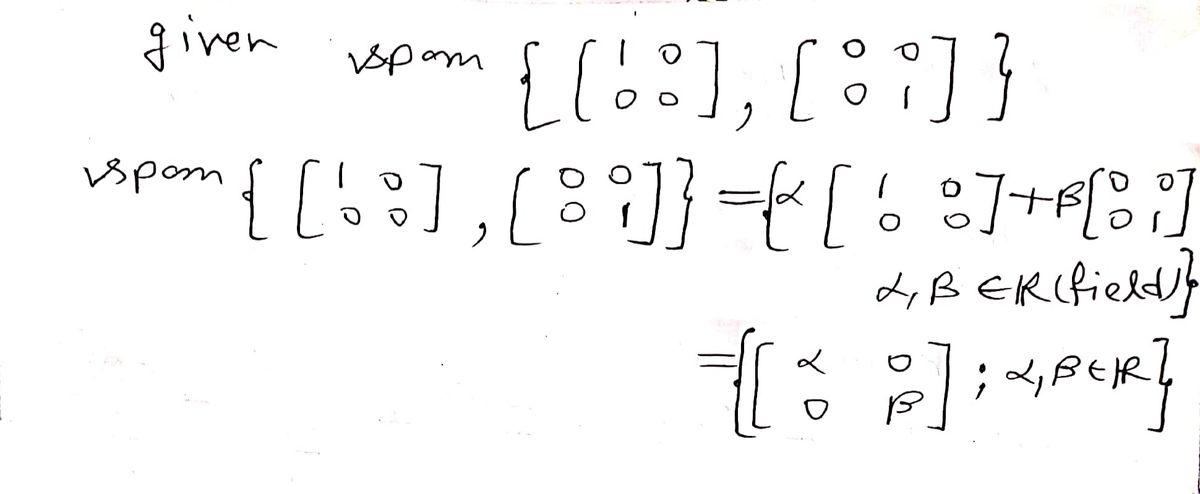 given vspam { [ 1 0 0 0 ], [ 0 0 0 1 ] }
vspam { [ 1 0 0 0 ], [ 0 0 0 1 ] } = { α [ 1 0 0 0 ] + β [ 0 0 0 1 ]
α, β ∈ ℝ (field) }
= { [ α 0 0 β ] ; α, β ∈ ℝ }